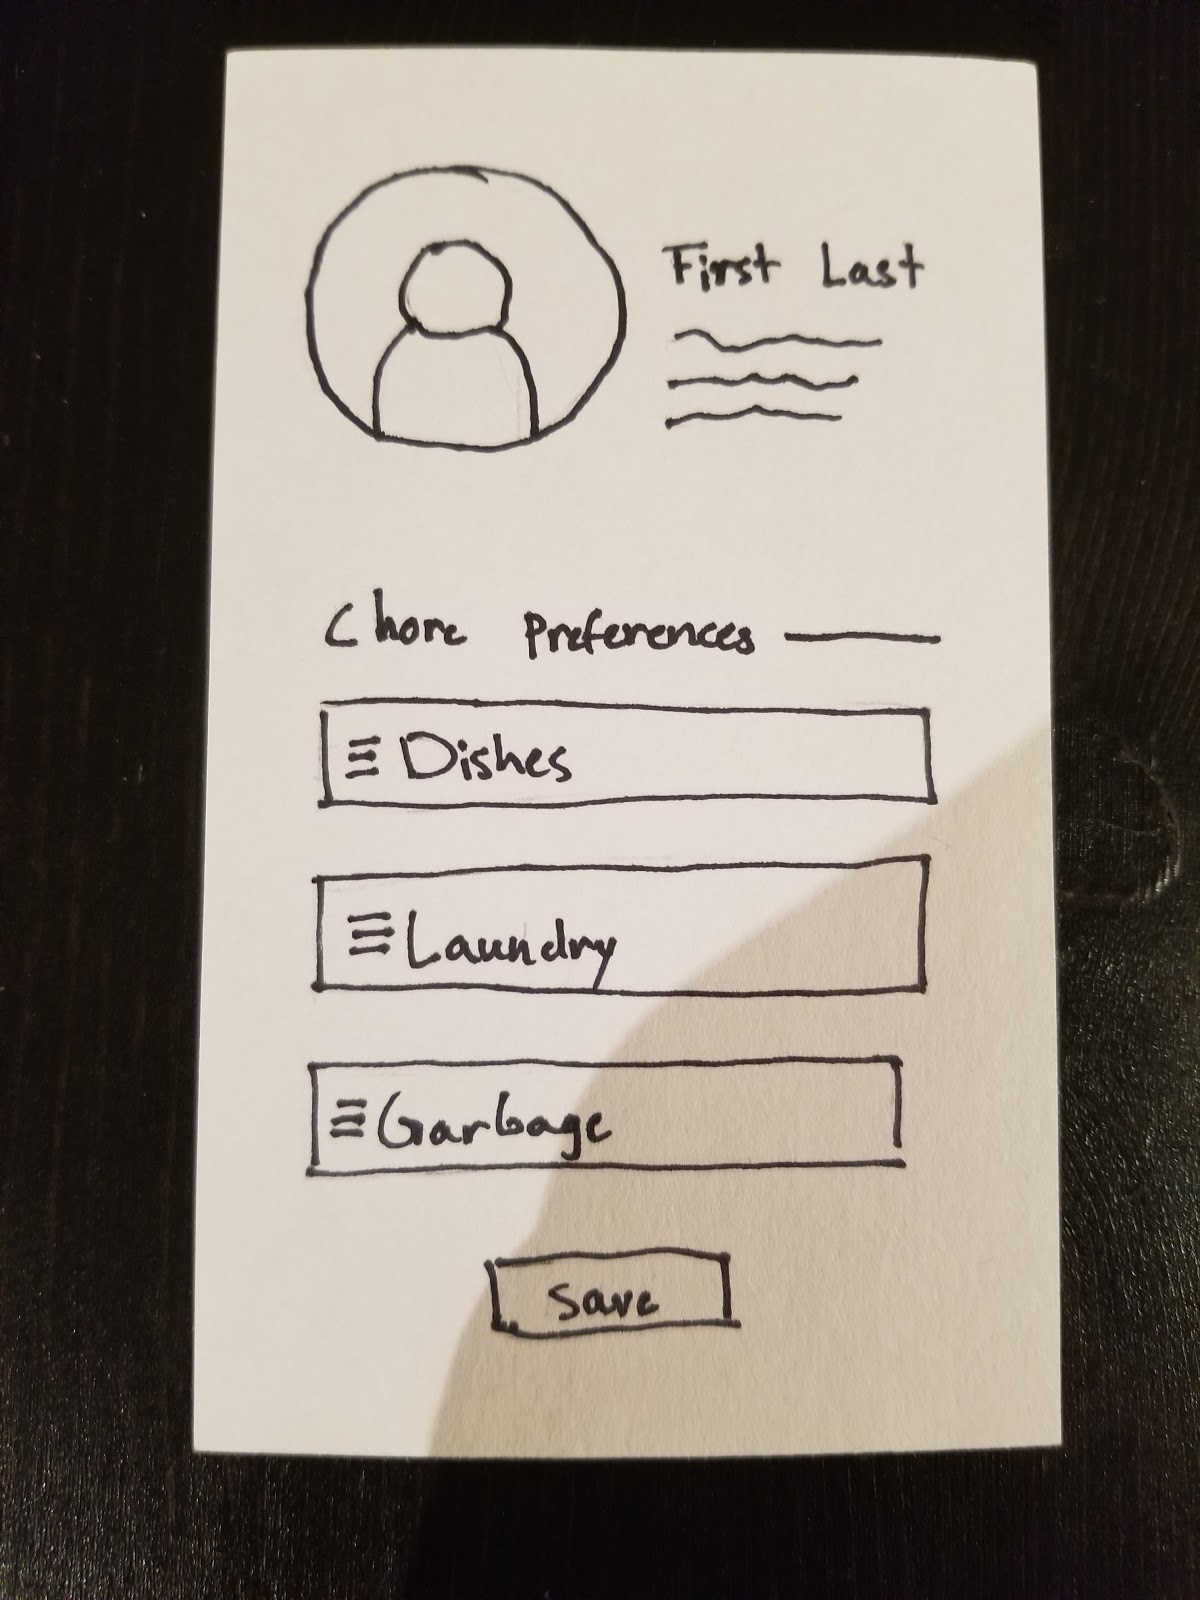 First Last
Chore Preferences
Dishes
Laundry
Garbage
Save